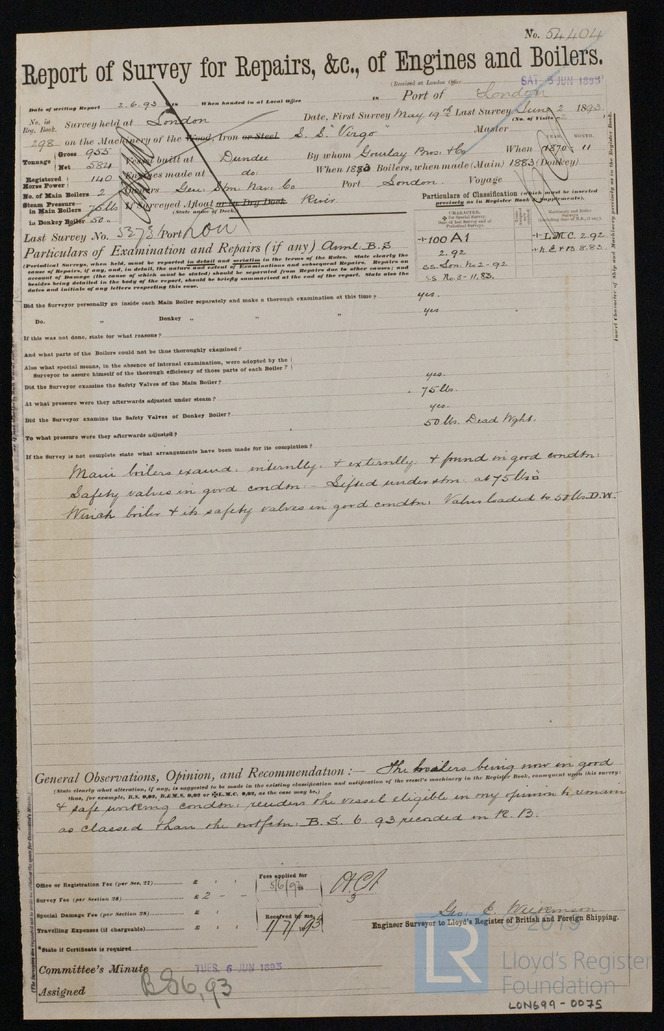 No. 54404
Report of Survey for Repairs, &c., of Engines and Boilers.
(Received at London Office SAT. 3 JUN 1893
Date of writing Report 2.6.93 When handed in at Local Office in Port of London
No. in Reg. Book. Survey held at London Date, First Survey May 19th Last Survey June 2 1893
(No. of Visits 2)
298 on the Machinery of the Wood, Iron or Steel S.S. "Virgo" Master
Tonnage Gross 955 Vessel built at Dundee By whom Gourlay Bros. & Co When 1870 - 11
Net 584
Registered Horse Power 140 Engines made at do: When 1883 Boilers, when made (Main) 1883 (Donkey)
No. of Main Boilers 2 Owners Gen. Stm. Nav. Co Port London Voyage
Steam Pressure in Main Boilers 75 lbs If Surveyed Afloat or in Dry Dock River
(State name of Dock.)
in Donkey Boiler 50 "
Particulars of Classification (which must be inserted precisely as in Register Book & Supplements).
Last Survey No. 5373 Port Lon
+100A1
2.92
SS. Lon. No 2-92
SS No. 3-11.83
+L.M.C. 2.92
+N.E. & B. 8.83
Particulars of Examination and Repairs (if any) Annl. B.S
(Periodical Surveys, when held, must be reported in detail and seriatim in the terms of the Rules. State clearly the
cause of Repairs, if any, and, in detail, the nature and extent of Examinations and subsequent Repairs. Repairs on
account of Damage (the cause of which must be stated) should be separated from Repairs due to other causes; and
besides being detailed in the body of the report, should be briefly summarised at the end of the report. State also the
dates and initials of any letters respecting this case.
Did the Surveyor personally go inside each Main Boiler separately and make a thorough examination at this time? yes.
Do. " Donkey " " " yes
If this was not done, state for what reasons?
And what parts of the Boilers could not be thus thoroughly examined?
Also what special means, in the absence of internal examination, were adopted by the
Surveyor to assure himself of the thorough efficiency of those parts of each Boiler?
Did the Surveyor examine the Safety Valves of the Main Boiler? yes.
At what pressure were they afterwards adjusted under steam? 75 lbs.
Did the Surveyor examine the Safety Valves of Donkey Boiler? yes.
To what pressure were they afterwards adjusted? 50 lbs. Dead Wght.
If the Survey is not complete state what arrangements have been made for its completion?
Main boilers examd. internlly. & externlly. & found in good condtn.
Safety valves in good condtn - Lifted under stm. at 75 lbs
Winch boiler & its safety valves in good condtn. Valves loaded to 50 lbs D.W.
General Observations, Opinion, and Recommendation:— The boilers being now in good
(State clearly what alteration, if any, is suggested to be made in the existing classification and notification of the vessel's machinery in the Register Book, consequent upon this survey:
thus, for example, B.S. 9,92, B.&M.S. 9,92 or +L.M.C. 9,92, as the case may be.)
& safe working condtn. renders the vessel eligible in my opinion to remain
as classed than the notfctn. B.S. 6.93 recorded in R.B.
Office or Registration Fee (per Sec. 27) £
Survey Fee (per Section 28) £ 2
Special Damage Fee (per Section 28) £
Travelling Expenses (if chargeable) £
Fees applied for
5/6/93
Received by me,
11/7/1893
Engineer Surveyor to Lloyd's Register of British and Foreign Shipping.
*State if Certificate is required
Committee's Minute TUES. 6 JUN 1893
Assigned BS6,93
LR
© 2019
Lloyd's Register
Foundation
LON699-0075